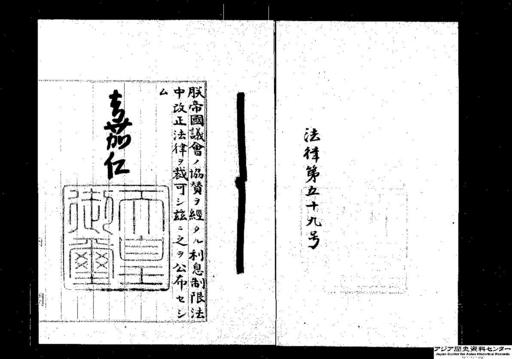 法律第五十九号
朕帝國議會ノ協贊ヲ經タル利息制限法
中改正法律ヲ裁可シ茲ニ之ヲ公布セシ
ム
嘉仁
天皇
御璽
アジア歴史資料センター
Japan Center for Asian Historical Records